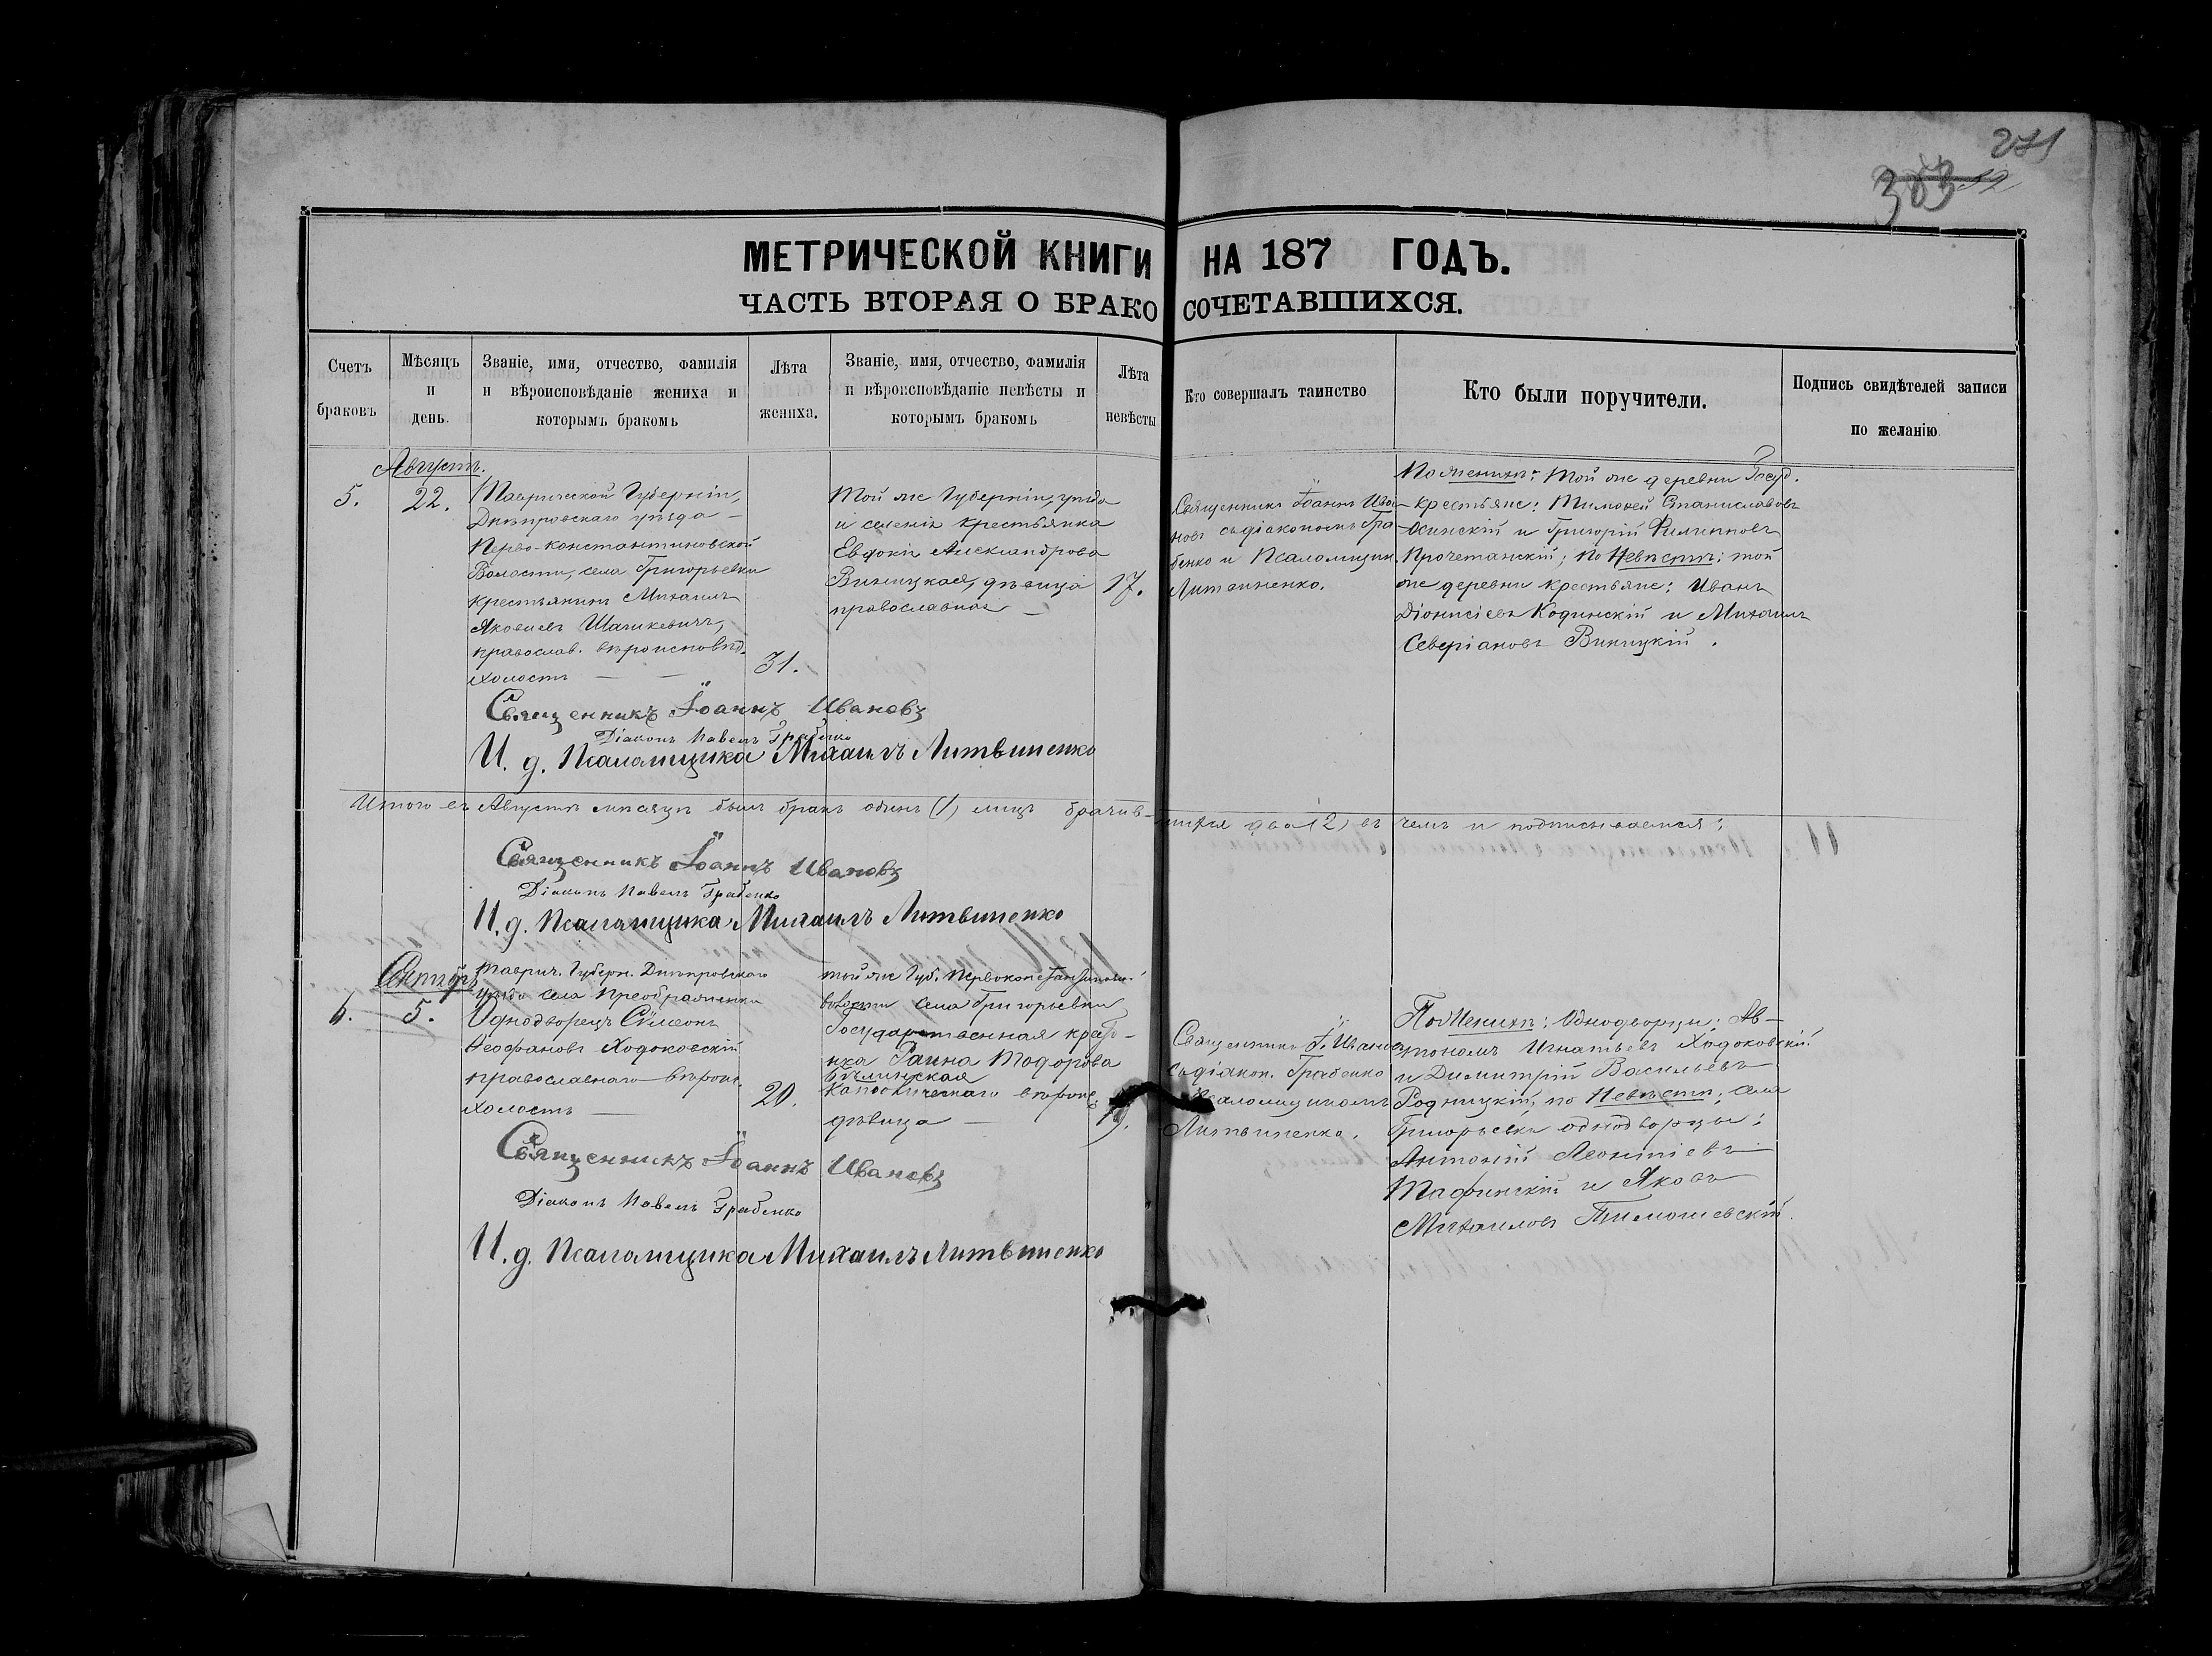 271
383
МЕТРИЧЕСКОЙ КНИГИ НА 187 ГОДЪ.
ЧАСТЬ ВТОРАЯ О БРАКОСОЧЕТАВШИХСЯ.
Счетъ браковъ
Мѣсяцъ и день.
Званіе, имя, отчество, фамилія
и вѣроисповѣданіе жениха и
которымъ бракомъ
Лѣта жениха.
Званіе, имя, отчество, фамилія
и вѣроисповѣданіе невѣсты и
которымъ бракомъ
Лѣта невѣсты
Кто совершалъ таинство
Кто были поручители.
Подпись свидѣтелей записи
по желанію
Августъ.
5.
22.
Таврической Губерніи,
Днѣпровскаго уѣзда –
Перво-константиновской
Волости, села Григорьевки
крестьянинъ Михаилъ
Яковлевъ Шашкевичъ,
православ. вѣроисповѣд.
холостъ — —
31.
Той же Губерніи, уѣзда
и селенія крестьянка
Евдокія Александрова
Виницкая, дѣвица
православная —
17.
Священникъ Іоаннъ Ива-
новъ съ діакономъ Гра-
бенко и Псаломщик.
Литвиненко.
По женихѣ: той же деревни Госуд.
крестьяне: Тимофей Станиславовъ
и Григорій Филипповъ
по Невѣстѣ: той
же деревни крестьяне: Иванъ
Діонисіевъ Кодинскій и Михаилъ
Северіановъ Виницкій.
Священникъ Іоаннъ Ивановъ
Діаконъ Павелъ Грабенко
И. д. Псаломщика Михаилъ Литвиненко
Итого въ Августѣ мѣсяцѣ былъ бракъ одинъ (1) лицъ брачив-шихся два (2) въ чемъ и подписываемся:
Священникъ Іоаннъ Ивановъ
Діаконъ Павелъ Грабенко
И. д. Псаломщика Михаилъ Литвиненко
Сентябрь
6.
5.
Таврич. Губерн. Днѣпровскаго
уѣзда села Преображенки
Однодворецъ Сѵмеонъ
Ѳеофановъ Ходоковскій
православнаго вѣроис.
холостъ —
20.
той же Губ. Первоконстантинов.
волости села Григорьевки
Государственная крестья-
нка Раина Тодорова
Бѣлинская
Католическаго вѣроис.
дѣвица —
19.
Священникъ І. Ивановъ
съ діакон. Грабенко
Псаломщикомъ
Литвиненко.
По Женихѣ: Однодворцы: Ав-
тономъ Игнатьевъ Ходоковскій
и Димитрій Васильевъ
Родницкій, по Невѣстѣ: села
Григорьевки однодворцы:
Антоній Леонтіевъ
и Яковъ
Михаиловъ Тимошевскій.
Священникъ Іоаннъ Ивановъ
Діаконъ Павелъ Грабенко
И. д. Псаломщика Михаилъ Литвиненко